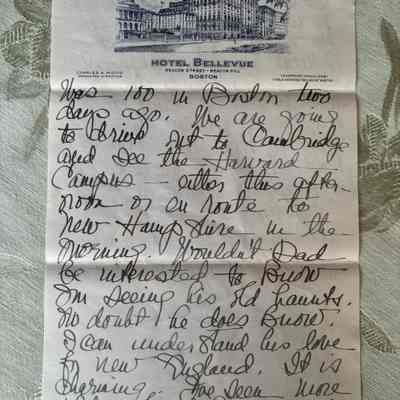 HOTEL BELLEVUE
BEACON STREET - BEACON HILL
BOSTON
CHARLES A. 
MANAGING DIRECTOR
Was 100 in Boston two
days ago. We are going
to drive out to Cambridge
and see the Harvard
Campus — either this after-
noon or en route to
New Hampshire in the
morning. Wouldn't Dad
be interested to know
I'm seeing his old haunts.
No doubt he does know.
I can understand his love
of New England. It is
charming. I've seen more